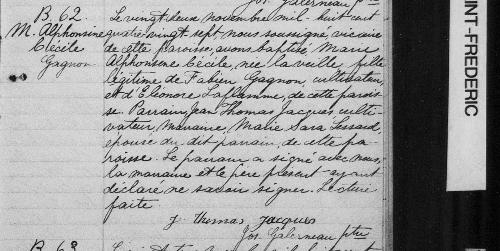 Jos. Galerneau ptre
B. 62
M. Alphonsine
Cécile
Gagnon
Le vingt deux novembre mil huit cent
quatre vingt sept nous soussigné, vicaire
de cette paroisse, avons baptisé Marie
Alphonsine Cécile, née la veille, fille
légitime de Fabien Gagnon, cultivateur,
et d'Eléonore Laflamme, de cette parois-
se. Parrain Jean Thomas Jacques, culti-
vateur, marraine, Marie Sara Lessard,
épouse du dit parrain, de cette pa-
roisse. Le parrain a signé avec nous,
la marraine et le père présent ayant
déclaré ne savoir signer. Lecture
faite
J. Thomas Jacques
Jos. Galerneau ptre
B. 63
INT-FREDERIC